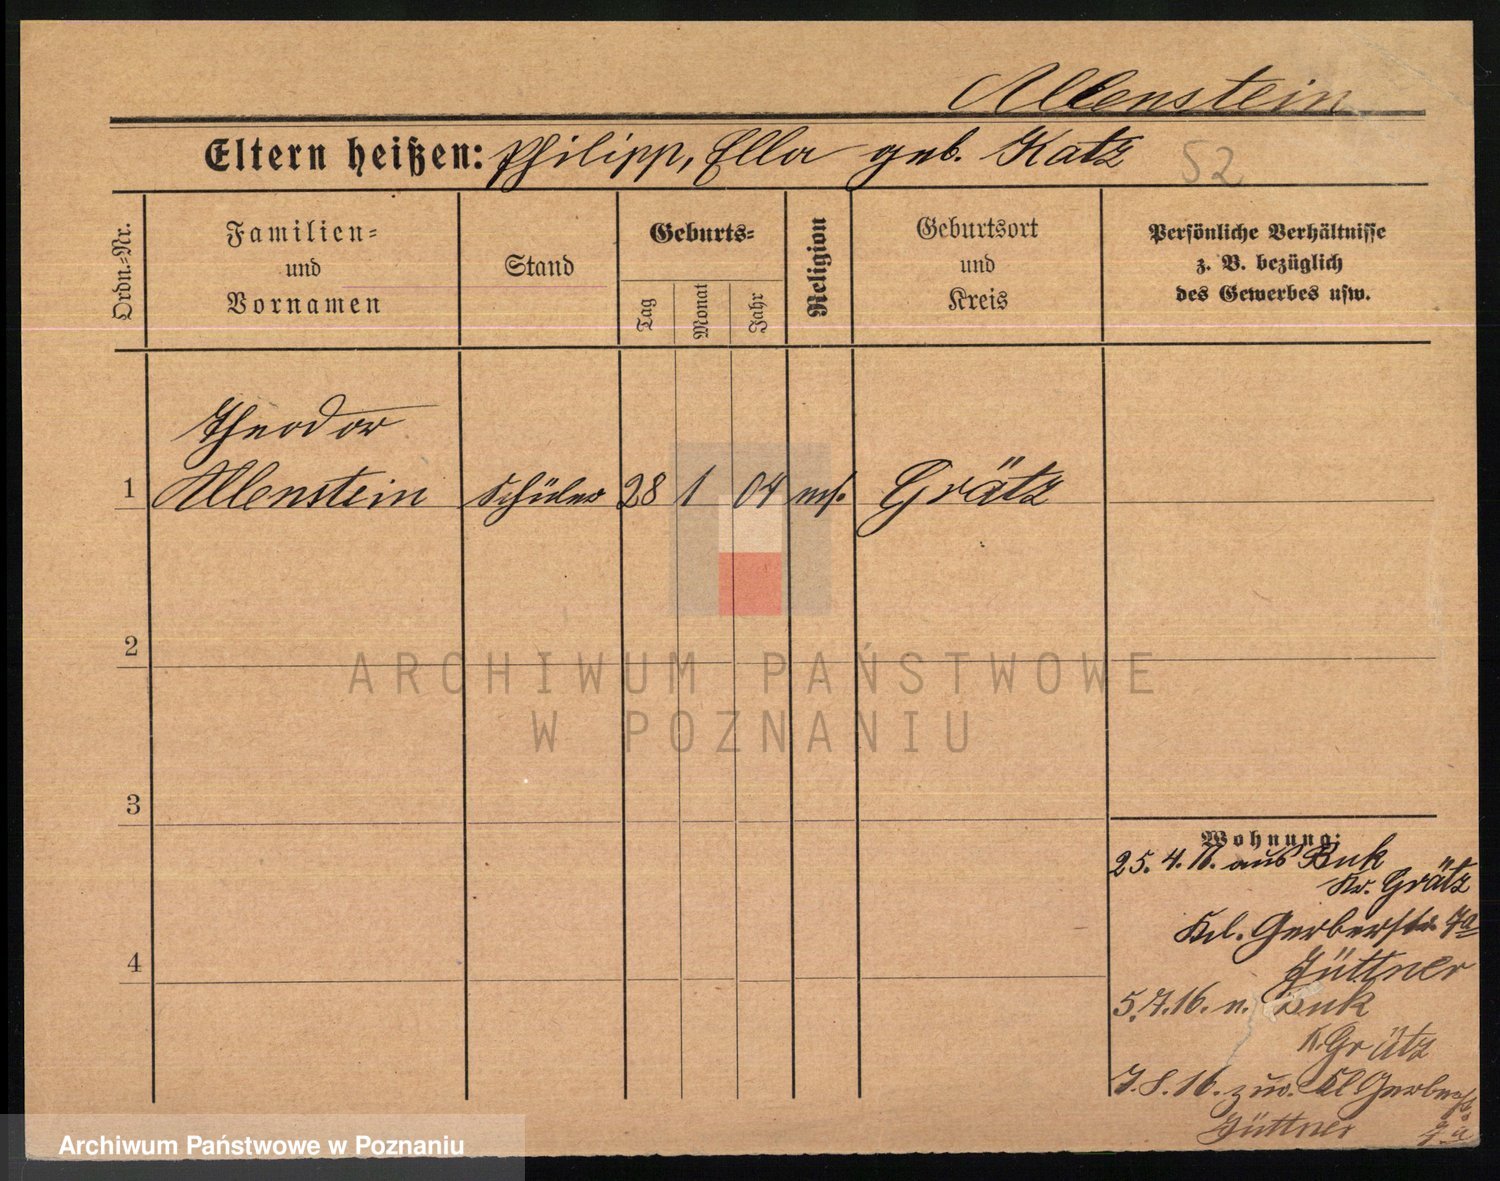 Allenstein
Eltern heißen: Philipp, Ella geb. Katz
52
Ordn.-Nr.
Familien-
und
Vornamen
Stand
Geburts-
Tag
Monat
Jahr
Religion
Geburtsort
und
Kreis
Persönliche Verhältnisse
z. B. bezüglich
des Gewerbes usw.
Theodor
1 Allenstein Schüler 28 1 04 mos. Grätz
2
ARCHIWUM PAŃSTWOWE
W POZNANIU
3
4
Wohnung:
25. 4. 16. aus Buk
Kr. Grätz
Kl. Gerberstr. 7a
Jüttner
5.7.16. n. Buk
K. Grätz
7.8.16. zur. Kl Gerberstr.
Jüttner 7a
Archiwum Państwowe w Poznaniu